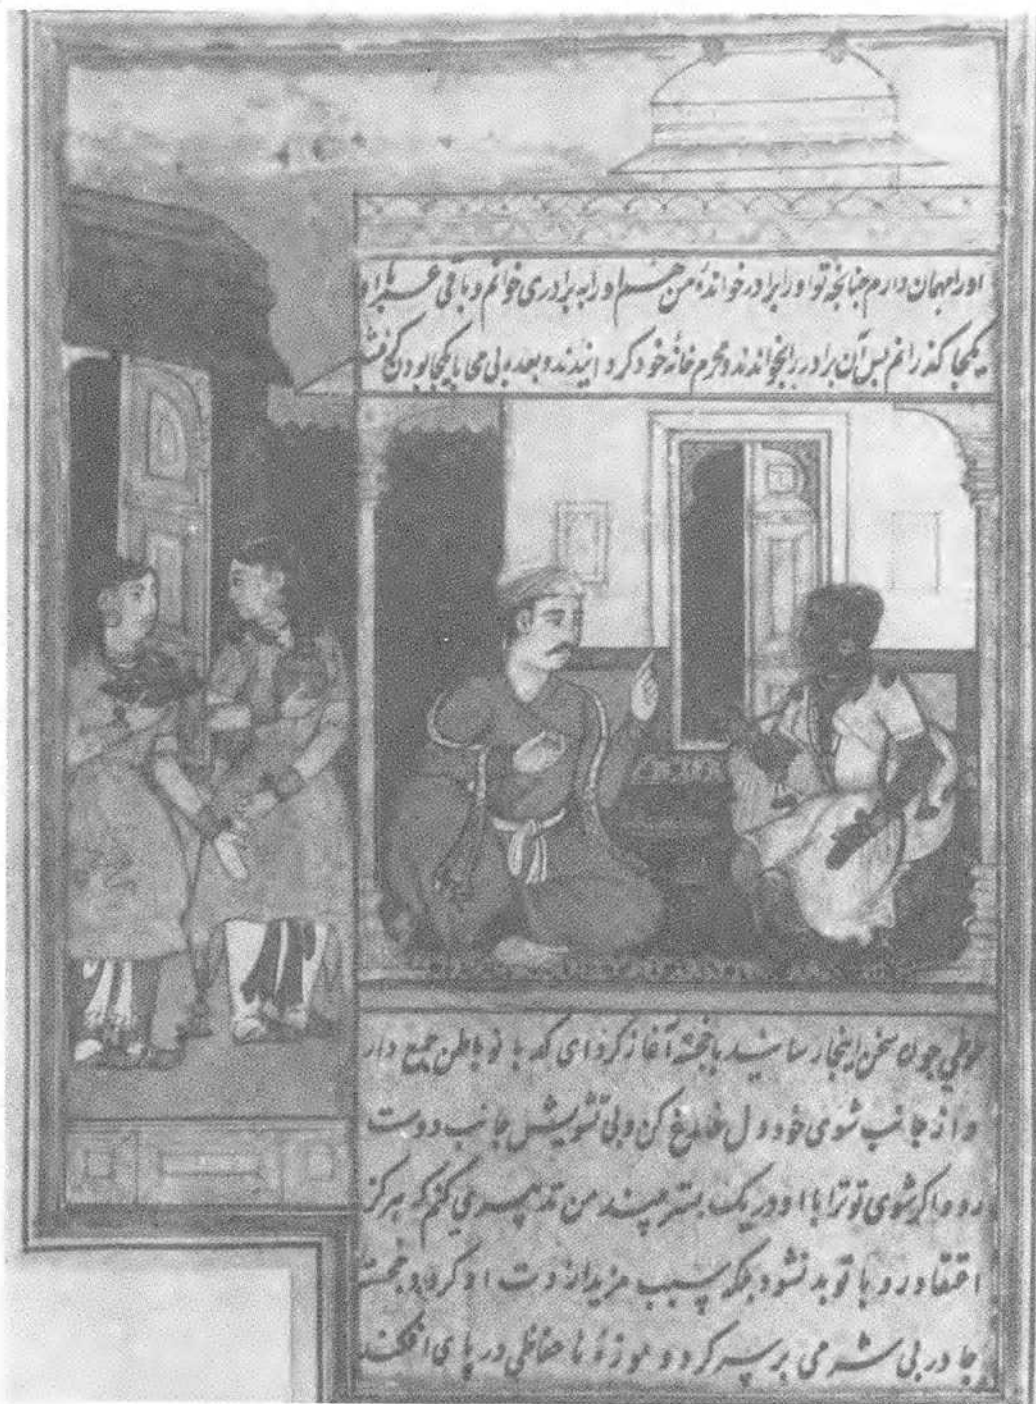 اورا مهمان دارم چنانچه تو اورا برادر خوانده من هم اورا به برادری خوانم و باقی عمر با او
یکجا گذرانم پس آن برادر را بخواندند و محرم خانه خود گردانیدند و بعده بی محابا یکجا بودن
طوطی چون سخن اینجا رسانید با خجسته آغاز کرد ای که بانو باطن جمع دار
و از جانب شوی خود دل فارغ کن و بی تشویش جانب دوست
رو و اگر شوی تو ترا با او در یک بستر بیند من تدبیری کنم که هرگز
اعتقاد او با تو بد نشود بلکه سبب مزید از او گردد خجسته
چادر بی شرمی بر سر کرد و موزهٔ نا حفاظی در پای افکند